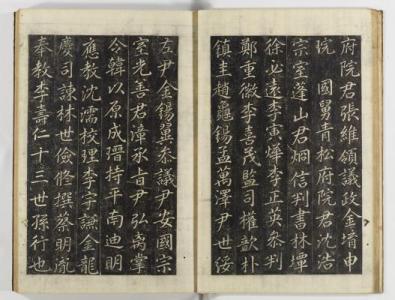 府院君張維領議政金堉申
琓 國舅青松府院君沈浩
宗室蓬山君炯信判書林墰
徐必遠李寅燁李正英叅判
鄭重徽李喜茂監司權歆朴
鎮圭趙龜錫孟萬澤尹世綏
左尹金錫翼叅議尹安國宗
室光善君澪承旨尹弘离掌
令韓以原成瑨持平南迪明
應教沈濡校理李宇謙金龍
慶司諫林世儉修撰蔡明胤
奉教李壽仁十三世孫行也